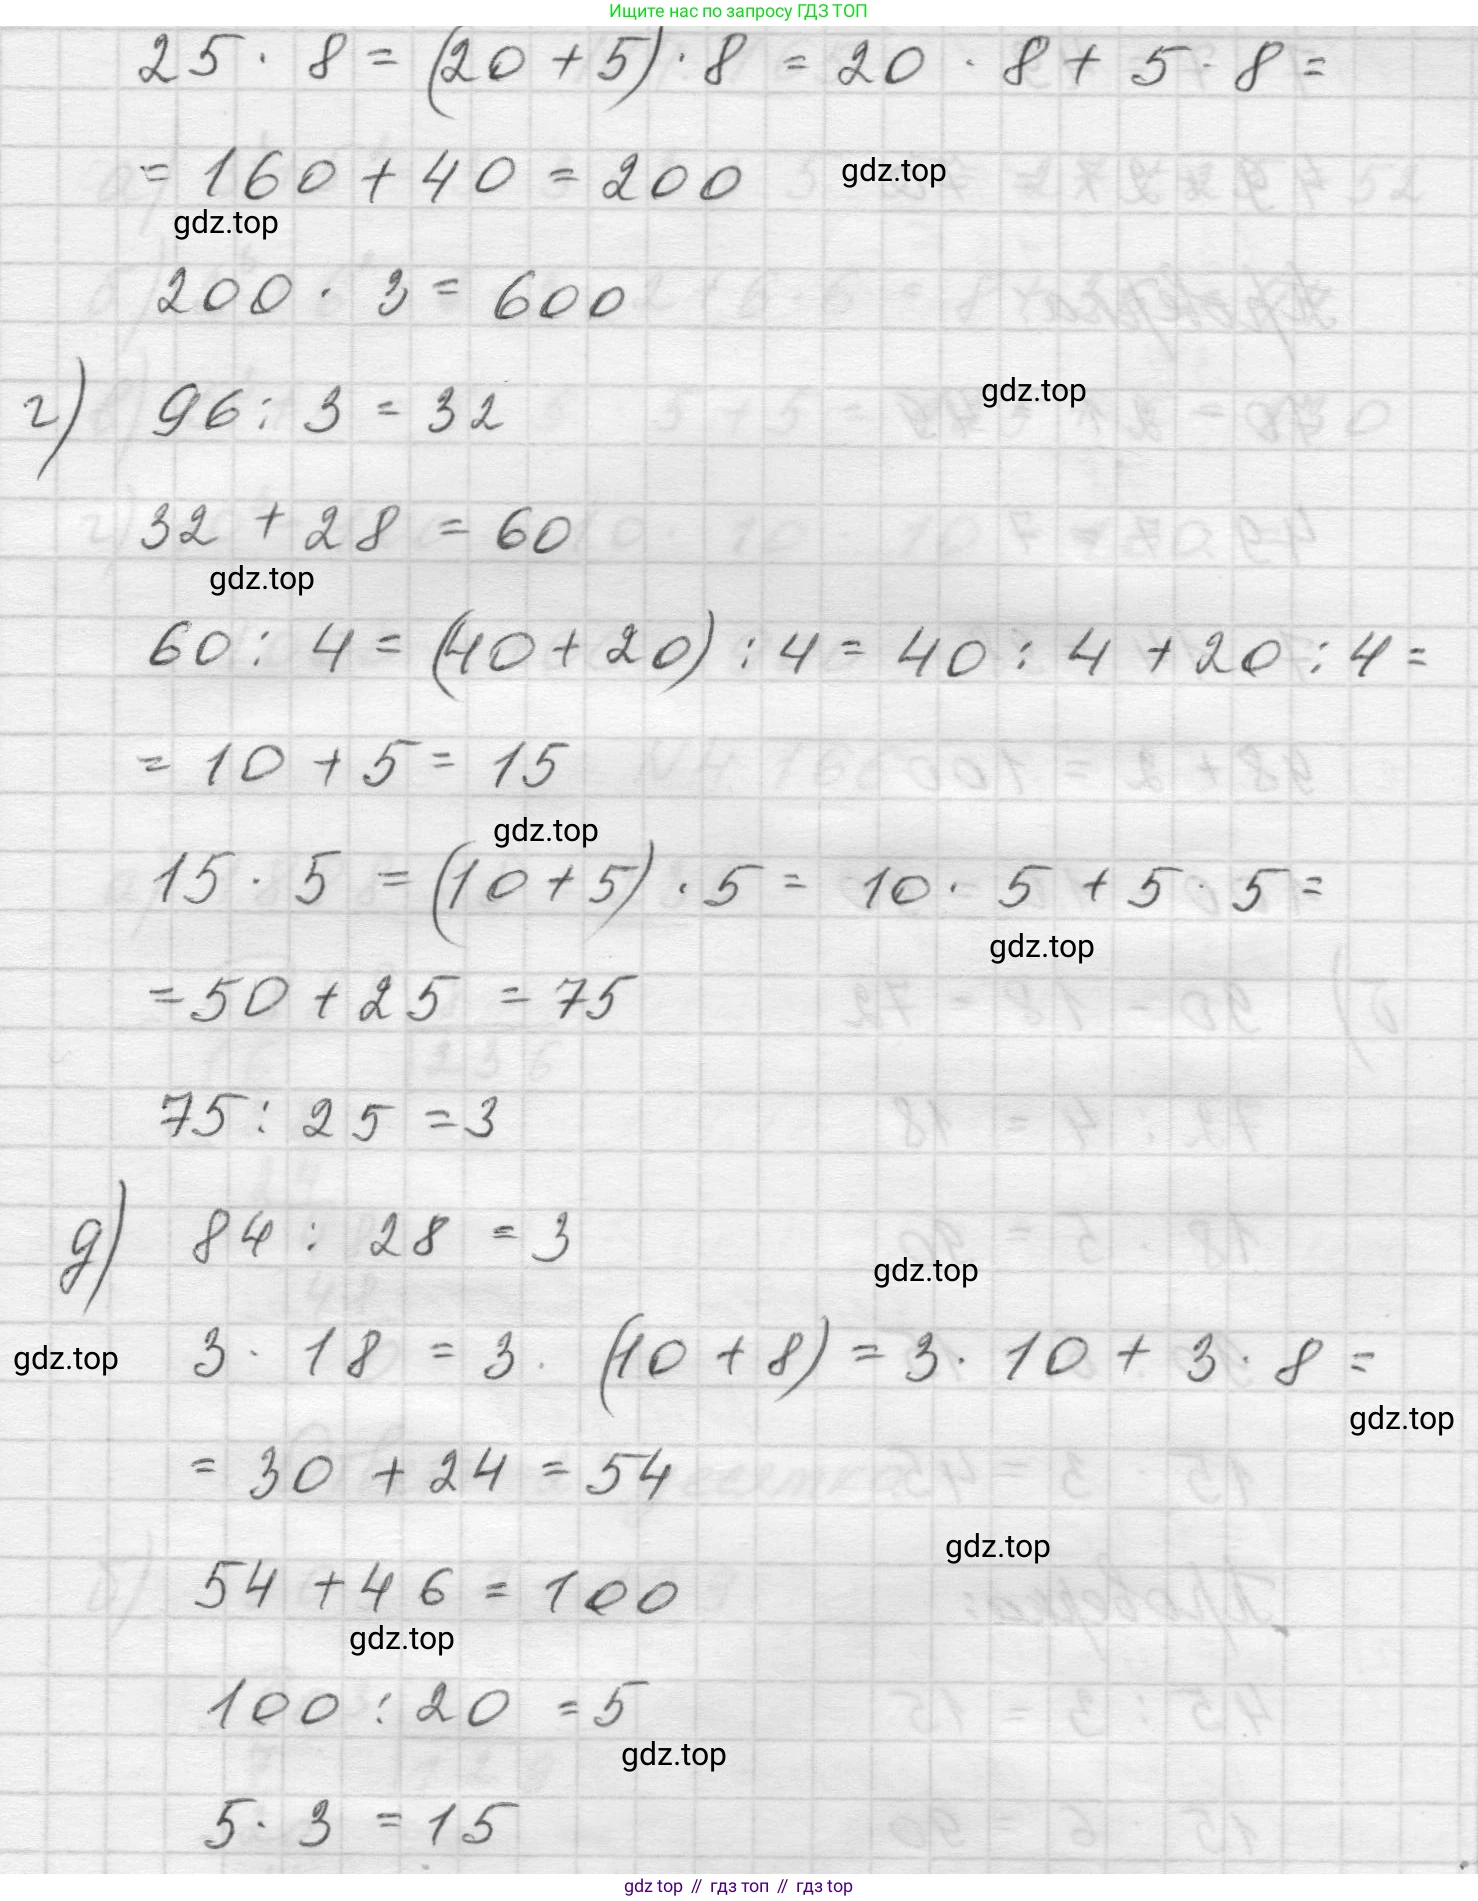 Ищите нас по запросу ГДЗ ТОП
25 · 8 = (20 + 5) · 8 = 20 · 8 + 5 · 8 =
= 160 + 40 = 200
gdz.top
gdz.top
200 · 3 = 600
г) 96 : 3 = 32
gdz.top
32 + 28 = 60
gdz.top
60 : 4 = (40 + 20) : 4 = 40 : 4 + 20 : 4 =
= 10 + 5 = 15
gdz.top
15 · 5 = (10 + 5) · 5 = 10 · 5 + 5 · 5 =
gdz.top
= 50 + 25 = 75
75 : 25 = 3
д) 84 : 28 = 3
gdz.top
gdz.top
3 · 18 = 3 · (10 + 8) = 3 · 10 + 3 · 8 =
gdz.top
= 30 + 24 = 54
gdz.top
54 + 46 = 100
gdz.top
100 : 20 = 5
gdz.top
5 · 3 = 15
gdz.top // гдз топ // gdz top